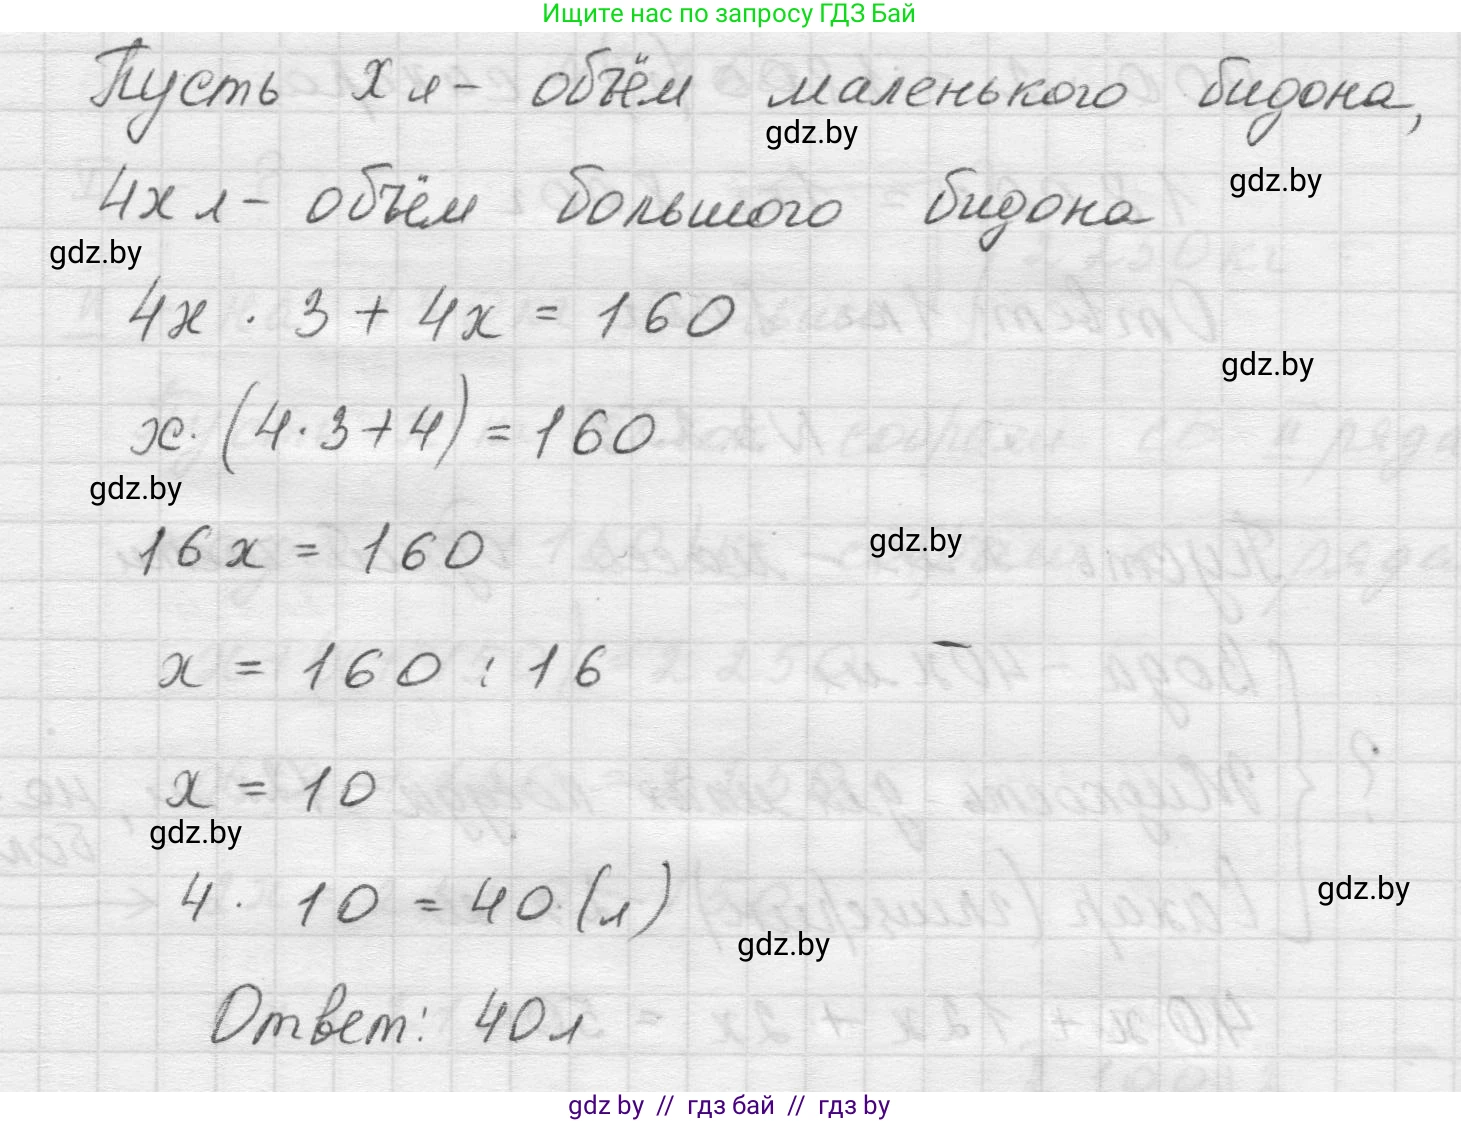 Ищите нас по запросу ГДЗ Бай
Пусть x л - объём маленького бидона,
gdz.by
gdz.by
4x л - объём большого бидона
gdz.by
4x · 3 + 4x = 160
gdz.by
x · (4 · 3 + 4) = 160
gdz.by
16x = 160
gdz.by
x = 160 : 16
x = 10
gdz.by
4 · 10 = 40 (л)
gdz.by
gdz.by
Ответ: 40л
gdz by // гдз бай // гдз by